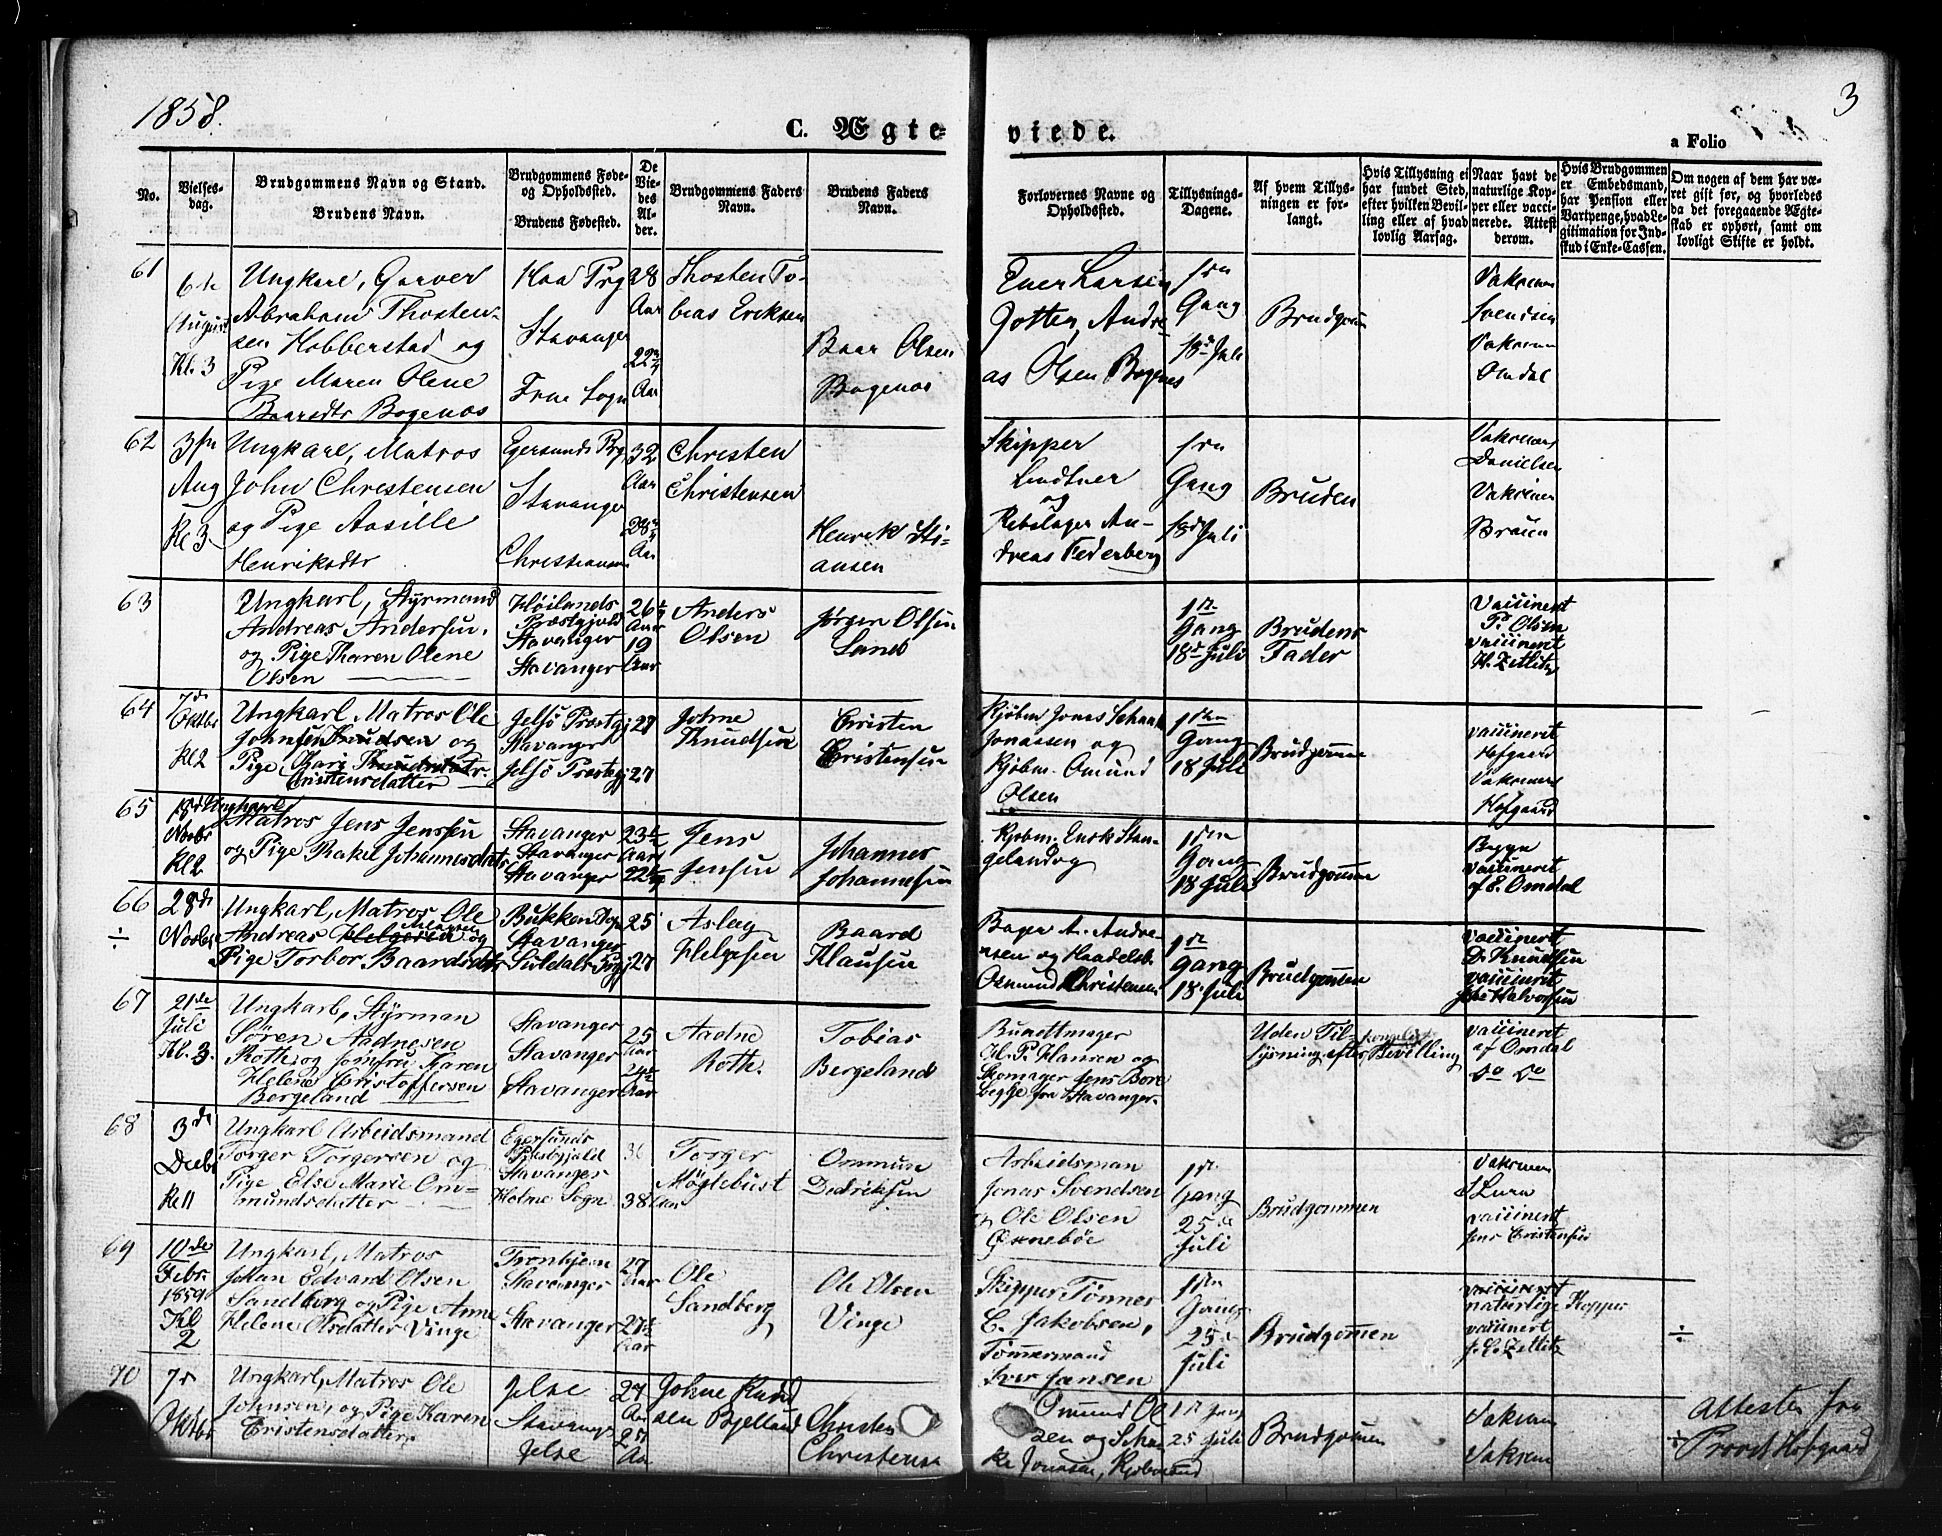 1858.
3
C. Ægte-
viede.
a Folio
No.
Vielses-
dag.
Brudgommens Navn og Stand.
Brudens Navn.
Brudgommens Føde-
og Opholdssted.
Brudens Fødested.
De
Vie-
des
Al-
der.
Brudgommens Faders
Navn.
Brudens Faders
Navn.
Forlovernes Navne og
Opholdssted.
Tillysnings-
Dagene.
Af hvem Tillys-
ningen er for-
langt.
Hvis Tillysning ei
har fundet Sted,
efter hvilken Bevil-
ling eller af hvad
lovlig Aarsag.
Naar havt de
naturlige Kop-
per eller vacci-
nerede. Attest
derom.
Hvis Brudgommen
er Embedsmand,
har Pension eller
Vartpenge, hvad Le-
gitimation for Ind-
skud i Enke-Cassen.
Om nogen af dem har væ-
ret gift før, og hvorledes
da det foregaaende Ægte-
skab er ophørt, samt om
lovligt Skifte er holdt.
61
6te
August
Kl. 3
Ungkarl, Garver
Abraham Thosten-
sen Hobberstad og
Pige Maren Olene
Baardtr Bogenæs
Haa Prg
Stavanger
28
Aar
22
Aar
Thosten To-
bias Eriksen
Baar Olsen
Bogenæs
Ener Larsen
Jotten, Andre-
as Olsen Bogenes
Gang
18 Juli
Brudgom
Svendsen
Omdal
62
3die
Aug
Kl 3
Ungkarl, Matros
John Christensen
og Pige Aasille
Henriksdtr
Egersunds Prg
Stavanger
32
Aar
28
Aar
Christen
Christensen
Henrik Sti-
ansen
Skipper
Lindtner
og
Rebslager An-
dreas Federberg
Gang
18 Juli
Bruden
Danielsen
63
Ungkarl, Styrmand
Andreas Andersen
og Pige Tharen Olene
Olsen
Høilands
Præstgjeld
Stavanger
Stavanger
26
Aar
19
Aar
Anders
Olsen
Jørgen Olsen
1ste
Gang
18 Juli
Brudens
Fader
vaccineret
P. Olsen
vaccineret
H. Zetlitz
64
7de
Oktbr
Kl 2
Ungkarl Matros Ole
Johnsen Knudsen og
Pige Kari
Cristensdatter
Jelsø Præstgj
Stavanger
Jelsø Præstgj
27
27
Johne
Knudsen
Cristen
Cristensen
Kjøbm Jonas Schanke
Jonassen og
Kjøbm. Omund
Olsen
1ste
Gang
18 Juli
Brudgommen
vaccineret
Hofgaard
Hofgaard
65
18de
Novbr
Kl 2
Ungkarl
Matros Jens Jenssen
og Pige Rakel Johannesdatr
Stavanger
Stavanger
Stavanger
23
Aar
22
Jens
Jensen
Johannes
Johannesen
Kjøbm. Enok Stan-
gelandog
1ste
Gang
18 Juli
Brudgommen
vaccineret
af E. Omdal
66
÷
28de
Novbr
Ungkarl, Matros Ole
Andreas Helgesen og
Pige Torbor Baardsdtr
Bukken Sogn
Stavanger
Suldals Prgj
25
27
Aslag
Helgesen
Baard
Klausen
Bager A. Andre-
asen og Haadelsb.
Osmund Christensen
1ste
Gang
18 Juli
Brudgommen
vaccineret
D. Knudsen
vaccineret
Halvorsen
67
21de
Juli
Kl. 3.
Ungkarl, Styrman
Søren Aadnesen
Roth, og Jomfru Karen
Helene Cristoffersen
Bergeland
Stavanger
Stavanger
Stavanger
25
Aar
24
Aar
Aadne
Roth.
Tobias
Bergeland
Buntmager
H. P. Hansen og
Skomager Jens Bore
begge fra Stavanger.
Uden Til-
lysning efter
kongelig
Bevilling
vaccineret
af Omdal
Do Do
68
3de
Decbr
Kl 11
Ungkarl Arbeidsmand
Torger Torgersen og
Pige Else Marie Om-
mundsdatter
Egersunds
Præstgjeld
Stavanger
Holme Sogn
36
38 Aar
Torger
Møglebust
Ommun
Dedriksen
Arbeidsman
Jonas Svendsen
Ole Olsen
Ørnebøe
1ste
Gang
25de
Juli
Brudgommen
S. Lura
vaccineret
Jens Cristensen
69
10de
Febr.
1859
Kl
2
Ungkarl, Matros
Johan Edvard Olsen
Sandberg og Pige Anne
Helene Olsdatter Vinge
Tronhjem
Stavanger
Stavanger
27
Aar
27
Aar
Ole
Sandberg
Ole Olsen
Vinge
Skipper Tønnes
C. Jakobsen,
Tømmermand
Iver Jansen
1ste
Gang
25
Juli
Brudgommen
vaccineret
naturlige Kopper
vaccineret
J. C. Zetlitz
÷
70
7de
Oktbr
Ungkarl, Matros Ole
Johnsen, og Pige Karen
Cristensdatter
Jelse
Stavanger
Jelse
27
Aar
27
Aar
Johne Knud
sen Bjelland
Christen
Christensen
Omund Ol
sen og Schan
ke Jonasen, Kjøbmænd
1ste Gang
25 Juli
Brudgommen
Attester fra
Provst Hofgaard